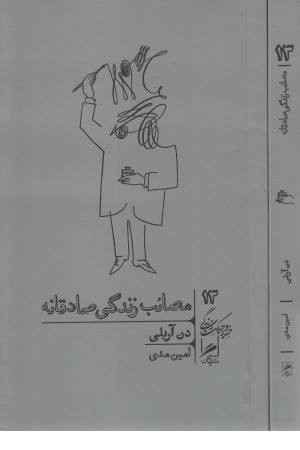 ۱۳
مصائب زندگی صادقانه
دن آریلی
امین مدی
۱۳
مصائب زندگی صادقانه
دن آریلی
امین مدی